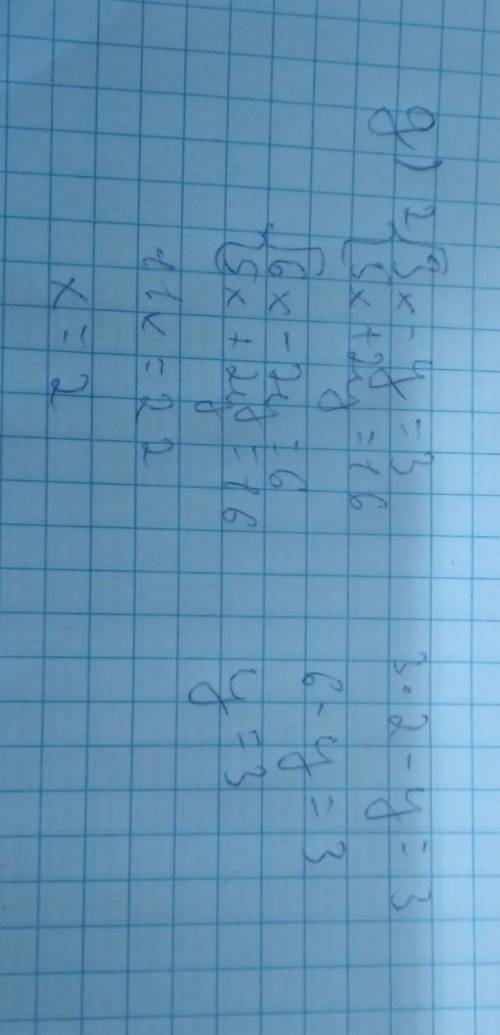 g) 2| 3x - y = 3
5x + 2y = 16
6x - 2y = 6
5x + 2y = 16
11x = 22
x = 2
3·2 - y = 3
6 - y = 3
y = 3